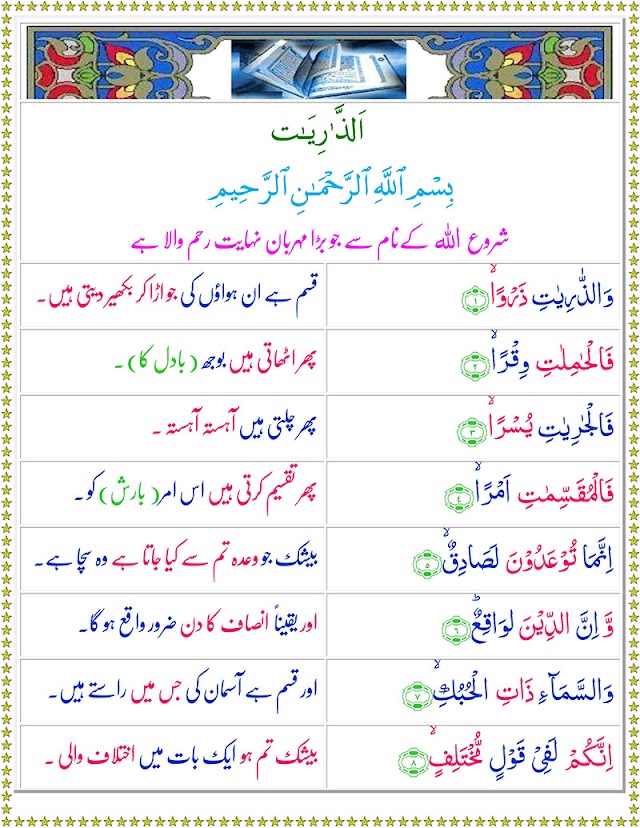 اَلذّٰرِيٰت
بِسْمِ ٱللَّهِ ٱلرَّحْمَـٰنِ ٱلرَّحِيمِ
شروع اللہ کے نام سے جو بڑا مہربان نہایت رحم والا ہے
وَالذّٰرِيٰتِ ذَرْوًا ۙ‏ ﴿۱﴾ قسم ہے ان ہواؤں کی جو اڑا کر بکھیر دیتی ہیں۔
فَالْحٰمِلٰتِ وِقْرًا ۙ‏ ﴿۲﴾ پھر اٹھاتی ہیں بوجھ (بادل کا)۔
فَالْجٰرِيٰتِ يُسْرًا ۙ‏ ﴿۳﴾ پھر چلتی ہیں آہستہ آہستہ۔
فَالْمُقَسِّمٰتِ اَمْرًا ۙ‏ ﴿۴﴾ پھر تقسیم کرتی ہیں اس امر (بارش) کو۔
اِنَّمَا تُوْعَدُوْنَ لَصَادِقٌ ۙ‏ ﴿۵﴾ بیشک جو وعدہ تم سے کیا جاتا ہے وہ سچا ہے۔
وَّاِنَّ الدِّيْنَ لَوَاقِعٌ ؕ‏ ﴿۶﴾ اور یقیناً انصاف کا دن ضرور واقع ہو گا۔
وَالسَّمَآءِ ذَاتِ الْحُـبُكِ ۙ‏ ﴿۷﴾ اور قسم ہے آسمان کی جس میں راستے ہیں۔
اِنَّكُمْ لَفِىْ قَوْلٍ مُّخْتَلِفٍ ۙ‏ ﴿۸﴾ بیشک تم ہو ایک بات میں اختلاف والی۔